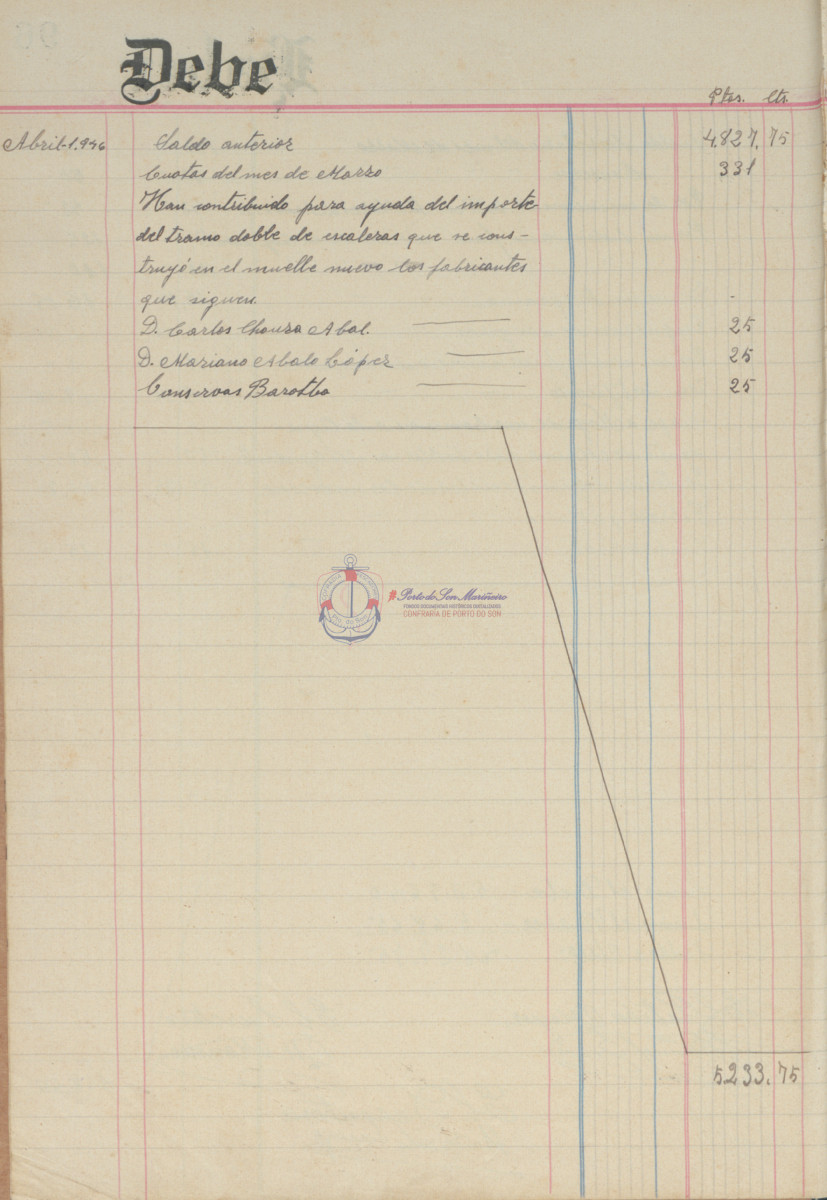 Debe
Ptas. Cts.
Abril-1.946 Saldo anterior 4.827,75
Cuotas del mes de Marzo 331
Han contribuido para ayuda del importe
del tramo doble de escaleras que se cons-
truyó en el muelle nuevo los fabricantes
que siguen.
D. Carlos Chouza Abal. 25
D. Mariano Abalo López 25
Conservas 25
Porto do Son Mariñeiro
FONDOS DOCUMENTAIS HISTÓRICOS DIXITALIZADOS
CONFRARÍA DE PORTO DO SON
5233.75